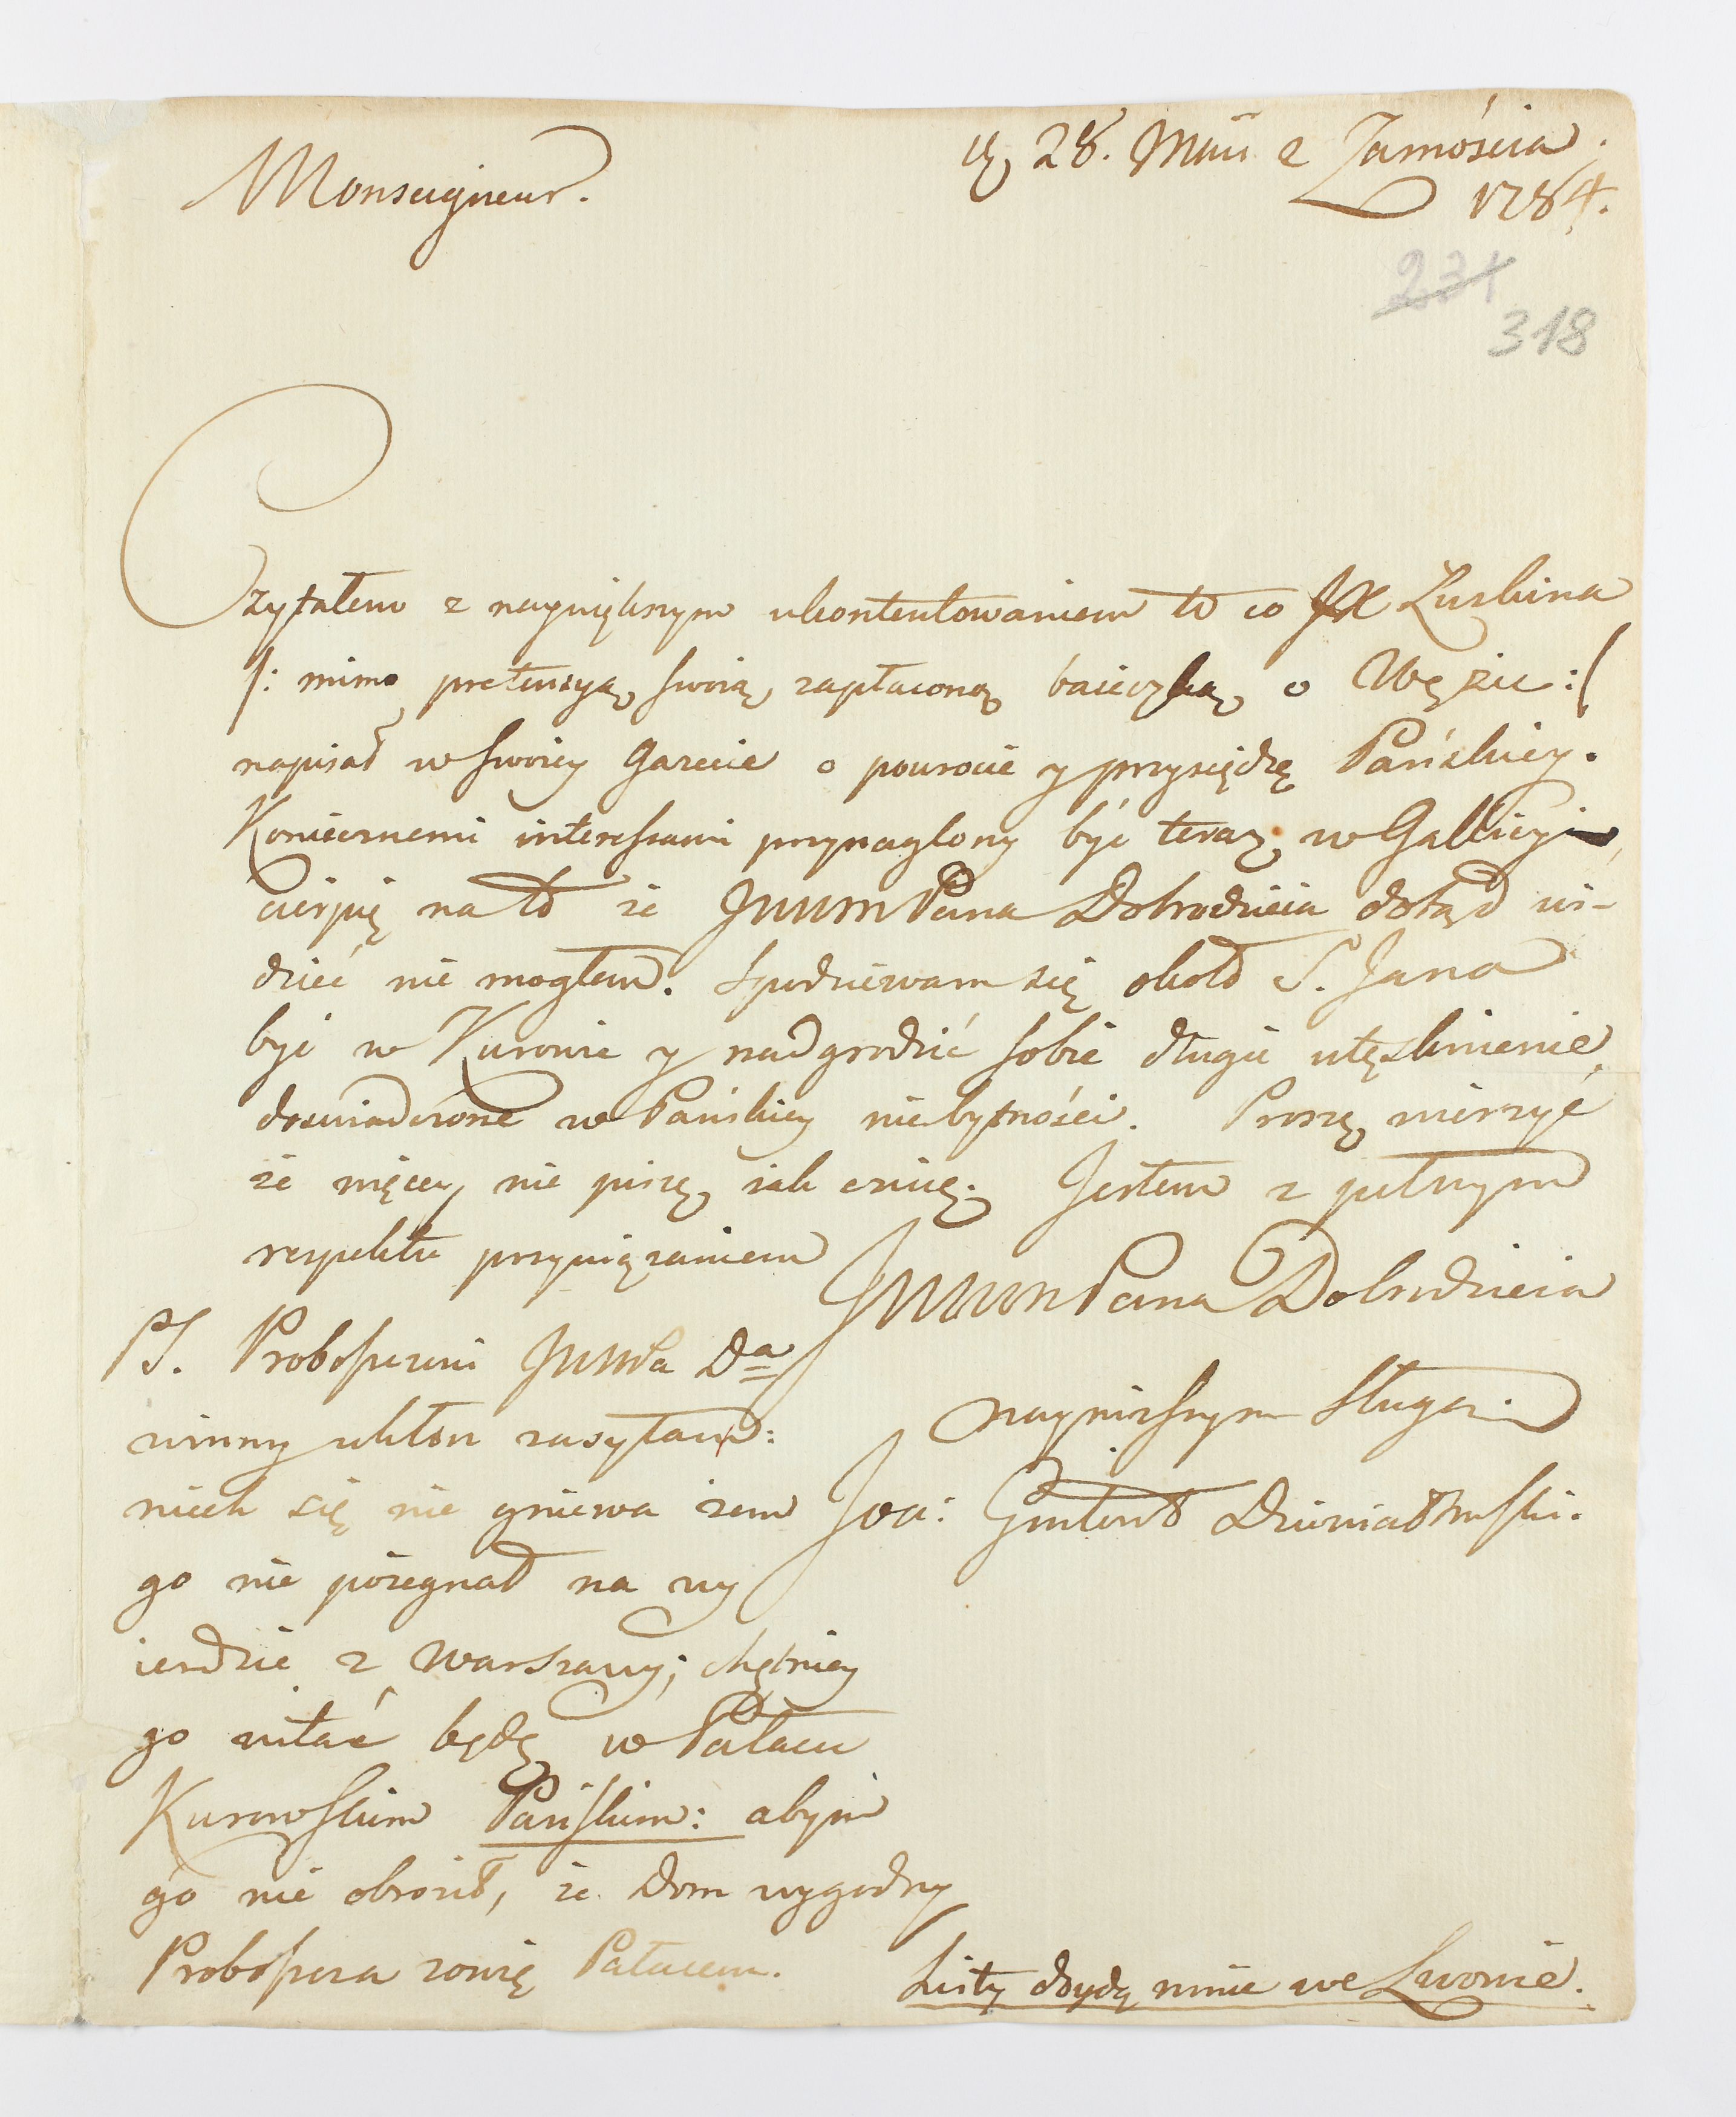 Monseigneur.
d. 28. Maii z Zamościa.
1784.
231
318
Czytałem z naywiększym ukontentowaniem to co JX Łuskina
/: mimo pretensyą swoią zapłaconą baieczką o Wężu :/
napisał w swoiey Gazecie o powrocie y przysiędze Pańskiey.
Koniecznemi interessami przynaglony być teraz w Gallicyi
cierpię na to że JWWMPana Dobrodzieia dotąd wi-
dzieć nie mogłem. Spodziewam się około S. Jana
być w Kurowie y nadgrodzić sobie długie utęsknienie
doświadczone w Pańskiey niebytności. Proszę wierzyć
że więcey nie piszę iak czuię. Jestem z pełnym
respektu przywiązaniem
JWWMPana Dobrodzieia
nayniższym sługą.
PS. Proboszczowi JMWPa Da
winny ukłon zasyłam:
niech się nie gniewa żem
go nie pożegnał na wy
ieździe z Warszawy; chętniey
go witać będę w Pałacu
Kurowskim Pańskim: abym
go nie obraził, że Dom wygodny
Proboszcza zowię Pałacem.
Listy doydą mnie we Lwowie.